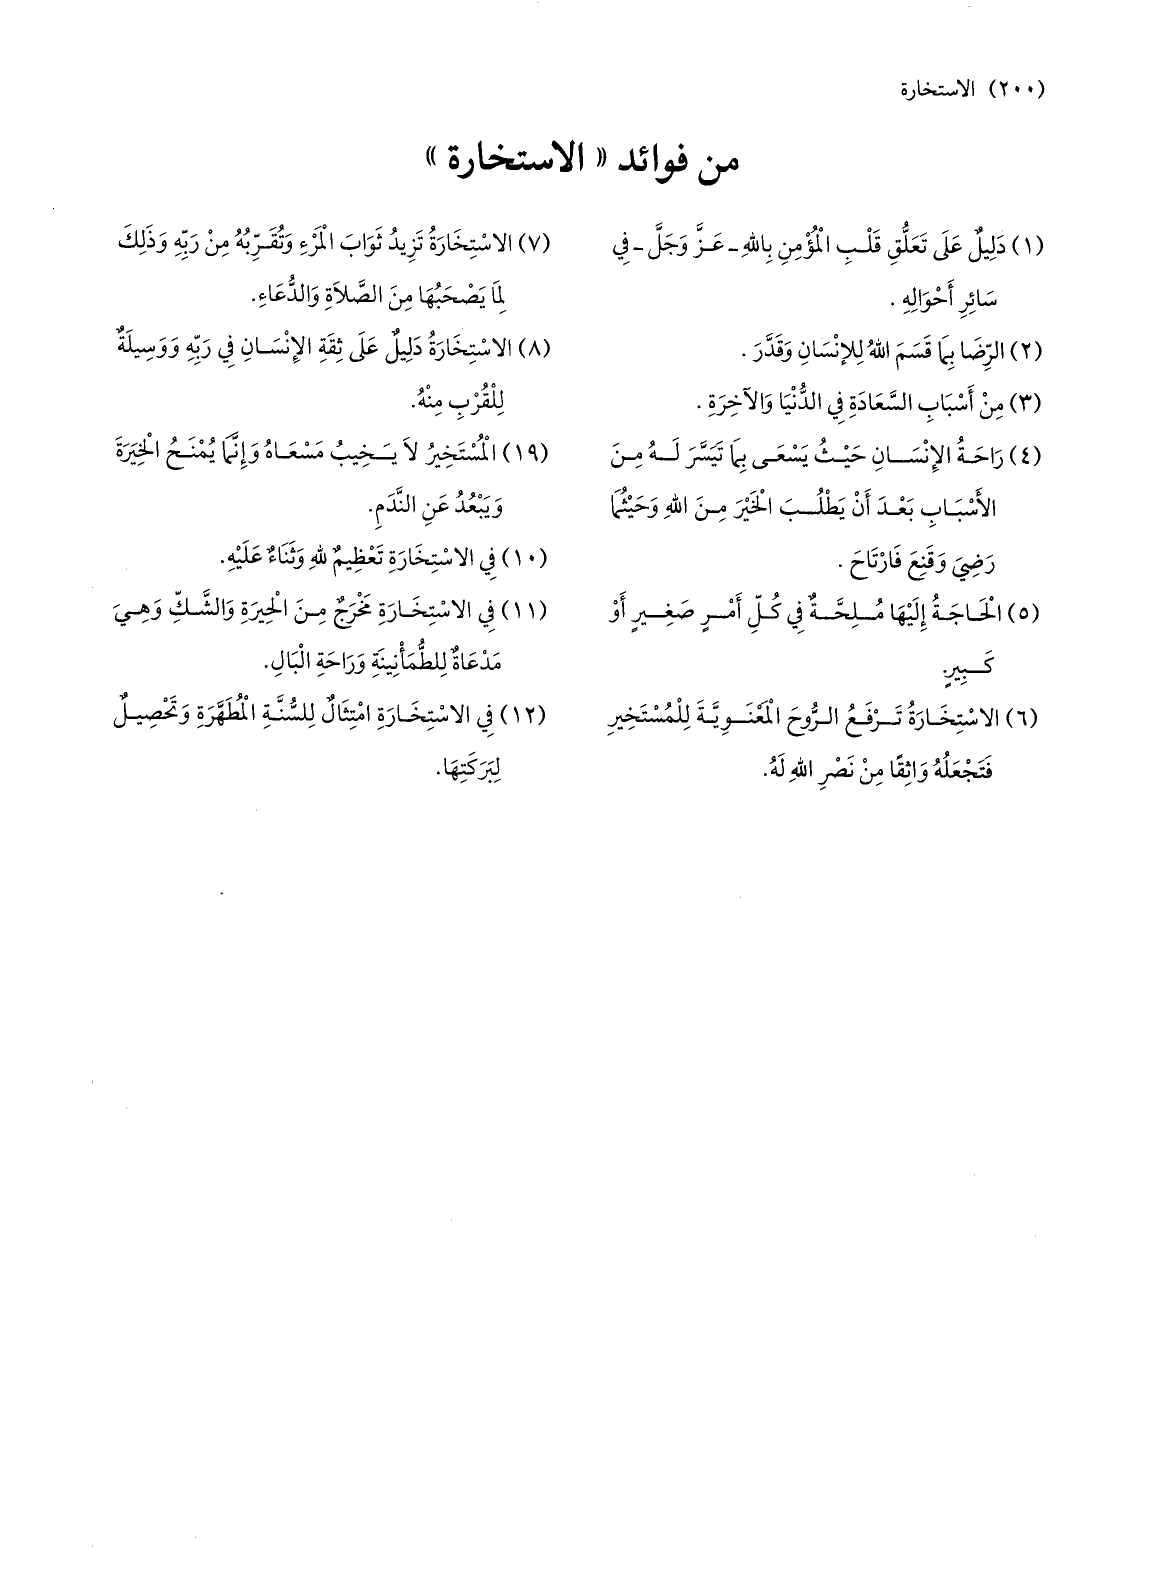 (٢٠٠) الاستخارة
من فوائد «الاستخارة»
(١) دَلِيلٌ عَلَى تَعَلُّقِ قَلْبِ الْمُؤْمِنِ بِاللهِ - عَزَّ وَجَلَّ - فِي
سَائِرِ أَحْوَالِهِ .
(٢) الرِّضَا بِمَا قَسَمَ اللهُ لِلإِنْسَانِ وَقَدَّرَ .
(٣) مِنْ أَسْبَابِ السَّعَادَةِ فِي الدُّنْيَا وَالآخِرَةِ .
(٤) رَاحَةُ الإِنْسَانِ حَيْثُ يَسْعَى بِمَا تَيَسَّرَ لَهُ مِنَ
الأَسْبَابِ بَعْدَ أَنْ يَطْلُبَ الْخَيْرَ مِنَ اللهِ وَحَيْثُمَا
رَضِيَ وَقَنِعَ فَارْتَاحَ .
(٥) الْحَاجَةُ إِلَيْهَا مُلِحَّةٌ فِي كُلِّ أَمْرٍ صَغِيرٍ أَوْ
كَبِيرٍ.
(٦) الاسْتِخَارَةُ تَرْفَعُ الرُّوحَ الْمَعْنَوِيَّةَ لِلْمُسْتَخِيرِ
فَتَجْعَلُهُ وَاثِقًا مِنْ نَصْرِ اللهِ لَهُ.
(٧) الاسْتِخَارَةُ تَزِيدُ ثَوَابَ الْمَرْءِ وَتُقَرِّبُهُ مِنْ رَبِّهِ وَذَلِكَ
لِمَا يَصْحَبُهَا مِنَ الصَّلاَةِ وَالدُّعَاءِ.
(٨) الاسْتِخَارَةُ دَلِيلٌ عَلَى ثِقَةِ الإِنْسَانِ فِي رَبِّهِ وَوَسِيلَةٌ
لِلْقُرْبِ مِنْهُ.
(١٩) الْمُسْتَخِيرُ لاَ يَخِيبُ مَسْعَاهُ وَإِنَّمَا يُمْنَحُ الْخِيَرَةَ
وَيَبْعُدُ عَنِ النَّدَمِ.
(١٠) فِي الاسْتِخَارَةِ تَعْظِيمٌ للهِ وَثَنَاءٌ عَلَيْهِ.
(١١) فِي الاسْتِخَارَةِ مَخْرَجٌ مِنَ الْحِيرَةِ وَالشَّكِّ وَهِيَ
مَدْعَاةٌ لِلطُّمَأْنِينَةِ وَرَاحَةِ الْبَالِ.
(١٢) فِي الاسْتِخَارَةِ امْتِثَالٌ لِلسُّنَّةِ الْمُطَهَّرَةِ وَتَحْصِيلٌ
لِبَرَكَتِهَا.